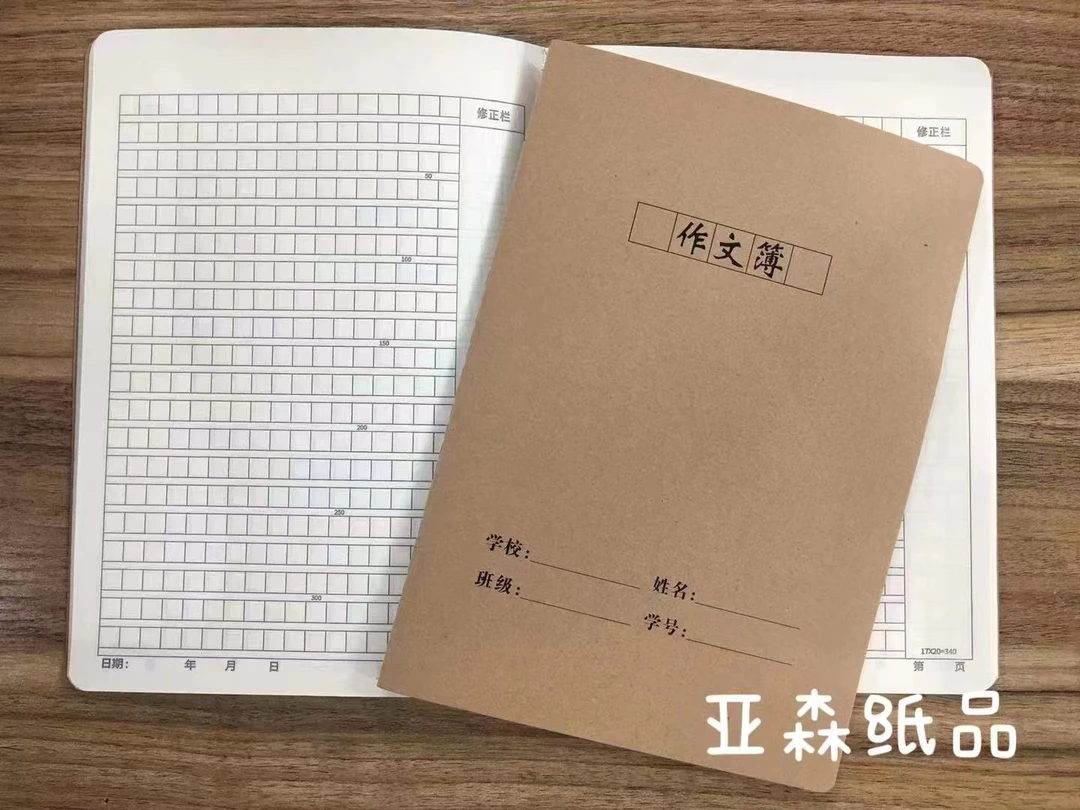 修正栏
50
100
150
200
250
300
日期: 年 月 日
作文簿
学校:
姓名:
班级:
学号:
修正栏
17X20=340
第 页
亚森纸品